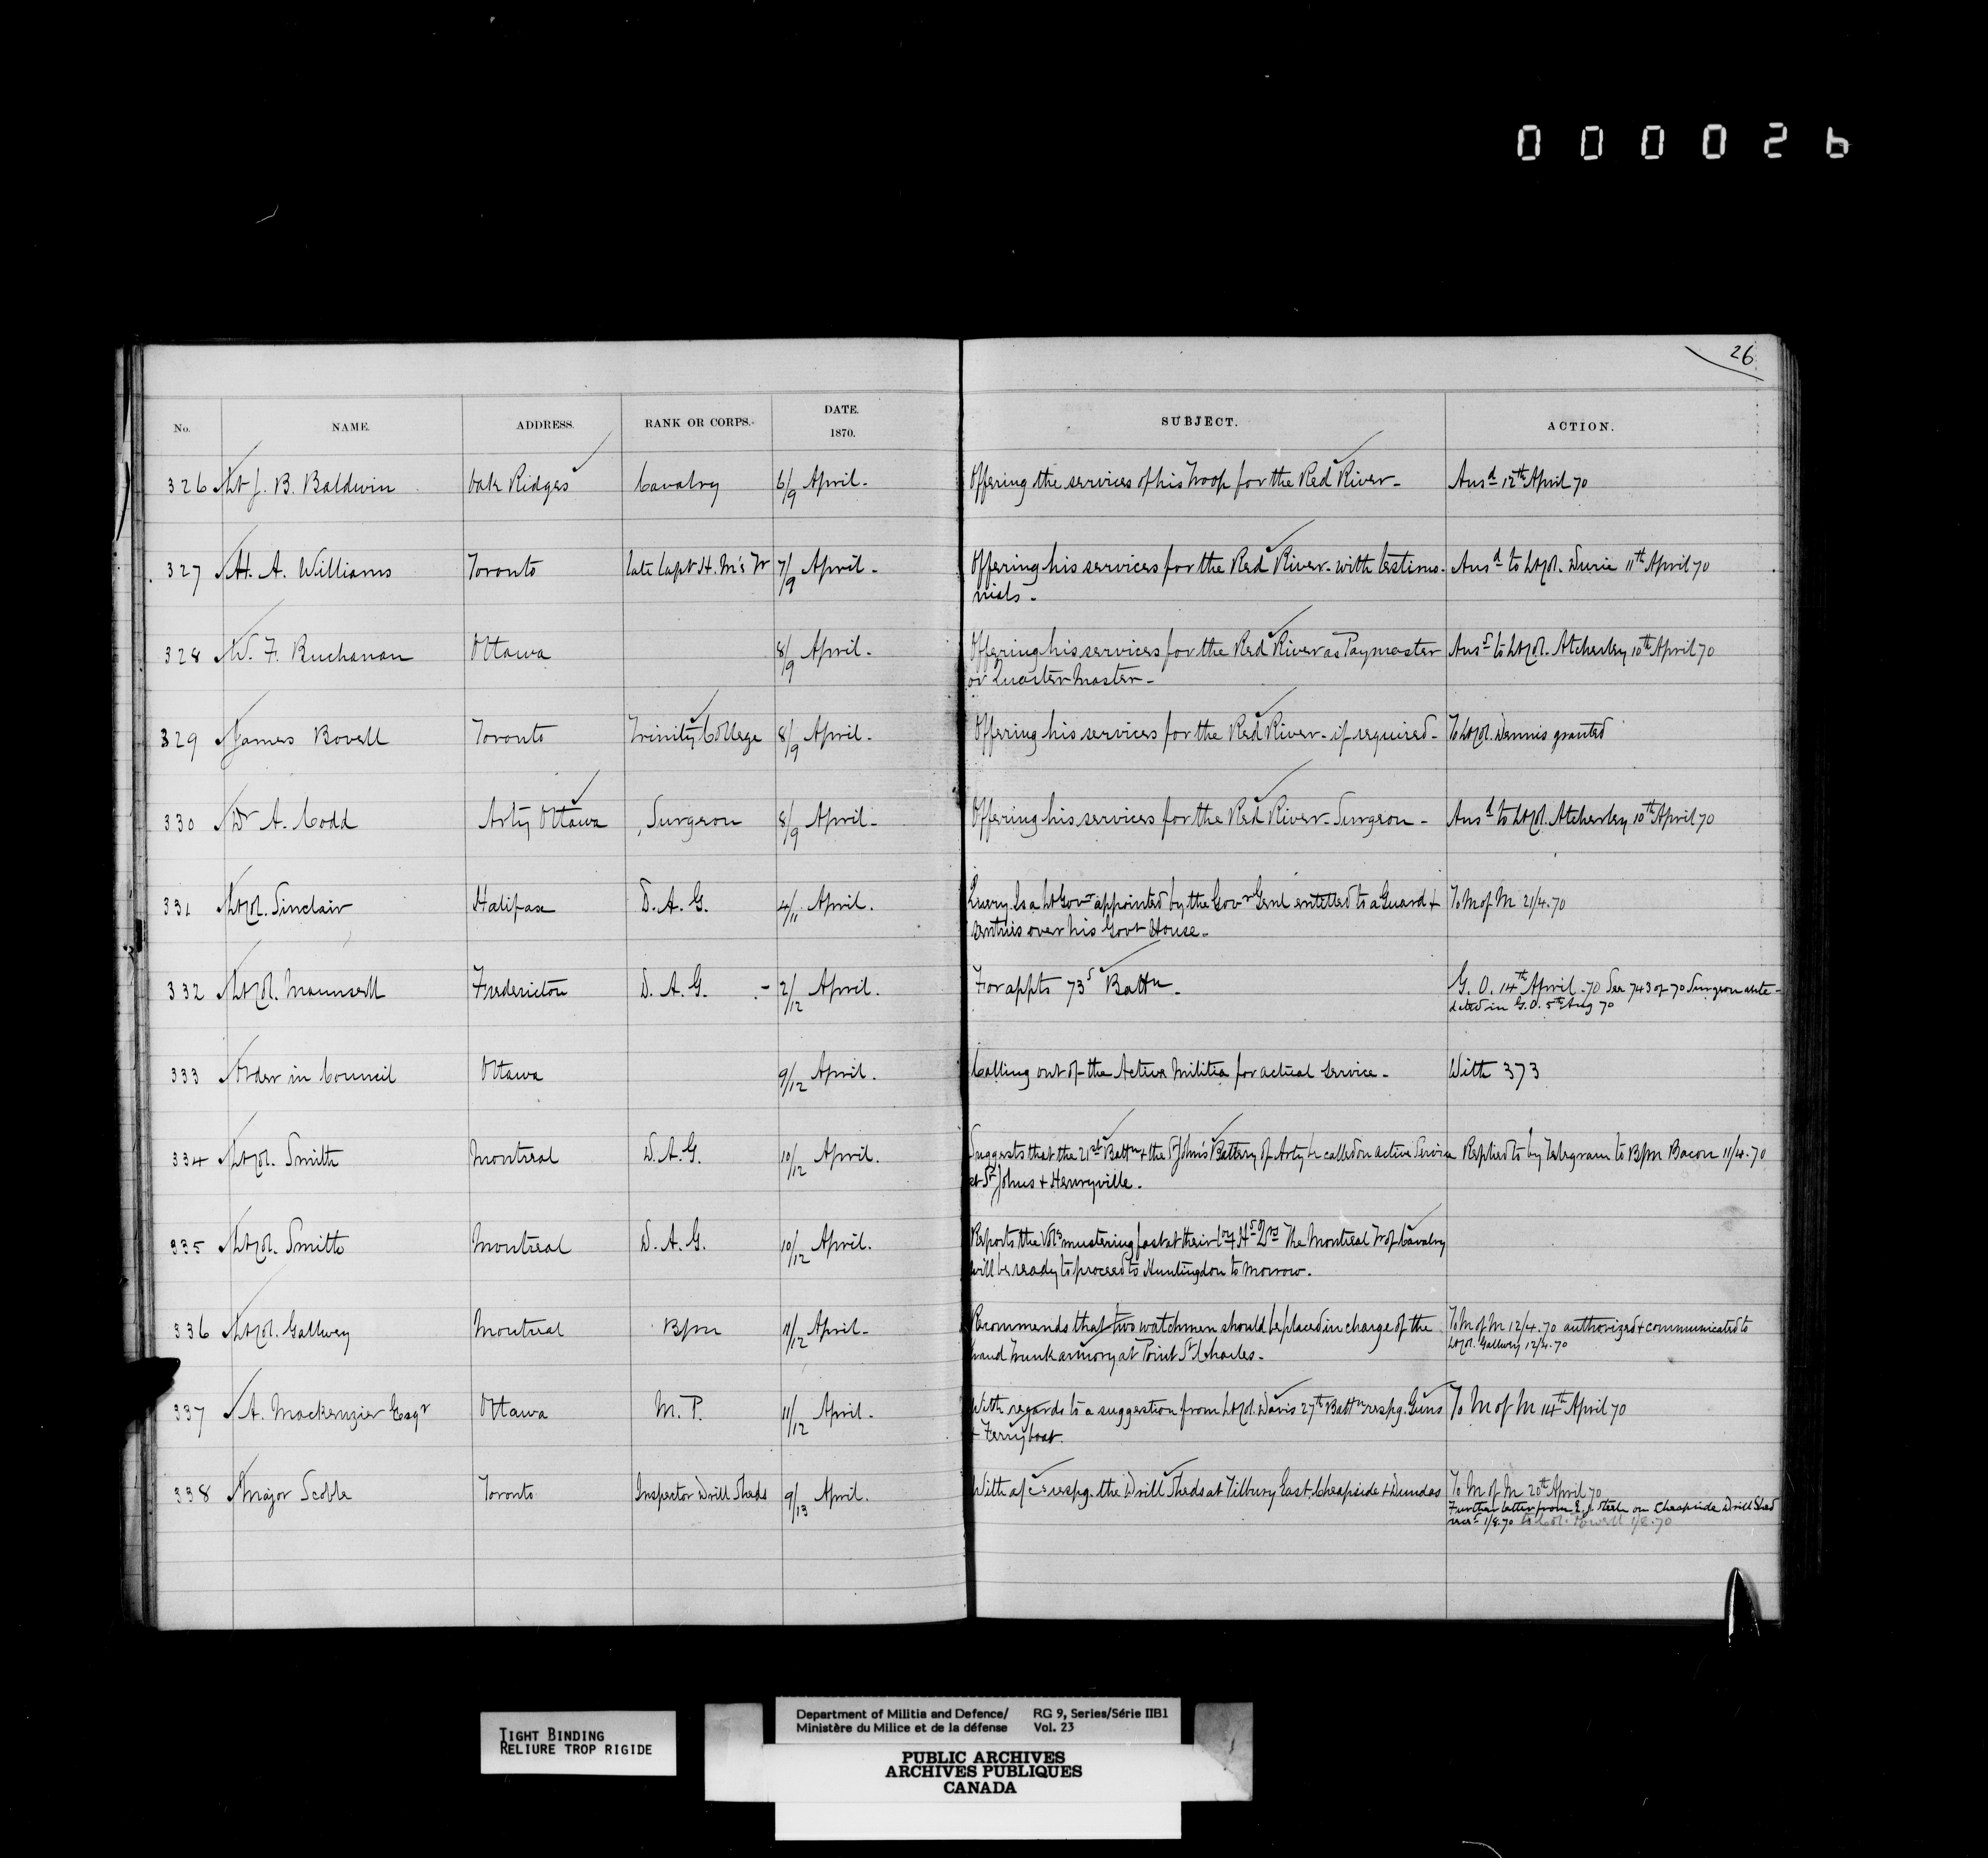 000026
26
No. NAME. ADDRESS. RANK OR CORPS. DATE. 1870. SUBJECT. ACTION.
326 Lt J. B. Baldwin Oak Ridges Cavalry 6/9 April. Offering the services of his Troop for the Red River. Ansd 12th April 70
327 H. A. Williams Toronto late Capt H. M's 7/9 April. Offering his services for the Red River. with testimo-
nials. Ansd to Lt Col. Durie 11th April 70
328 W. F. Buchanan Ottawa 8/9 April. Offering his services for the Red River as Paymaster
or Quarter Master. Ansd to Lt Col. Atcherley 10th April 70
329 James Bovell Toronto Trinity College 8/9 April. Offering his services for the Red River. if required. To Lt Col. Dennis granted
330 Dr A. Codd Arty Ottawa Surgeon 8/9 April. Offering his services for the Red River. Surgeon. Ansd to Lt Col. Atcherley 10th April 70
331 Lt Col. Sinclair Halifax D. A. G. 4/11 April. Query. Is a Lt Govr appointed by the Govr Genl entitled to a Guard &
sentries over his Govt House. To M of M 21/4.70
332 Lt Col. Maunsell Fredericton D. A. G. 2/12 April. For appts 73d Battn. G. O. 14th April. 70 See 743 of 70 Surgeon ante-
dated in G. O. 5th Aug 70
333 Order in Council Ottawa 9/12 April. Calling out of the Active Militia for actual service. With 373
334 Lt Col. Smith Montreal D. A. G. 10/12 April. Suggests that the 21st Battn & the St John's Battery of Arty be called on active service
at St Johns & Henryville. Replied to by telegram to B/m Bacon 11/4.70
335 Lt Col. Smith Montreal D. A. G. 10/12 April. Reports the Vols mustering fast at their Hd Qrs The Montreal Trp Cavalry
will be ready to proceed to Huntingdon to morrow.
336 Lt Col. Gallwey Montreal B/m 11/12 April. Recommends that two watchmen should be placed in charge of the
Grand Trunk armory at Point St Charles. To M of M 12/4.70 authorized & communicated to
Lt Col. Gallwey 12/4.70
337 A. Mackenzie Esqr Ottawa M. P. 11/12 April. With regards to a suggestion from Lt Col. Davis 27th Battn respg. Guns
& Ferryboat. To M of M 14th April 70
338 Major Scoble Toronto Inspector Drill Sheds 9/13 April. With a/cs respg. the Drill Sheds at Tilbury East, Cheapside & Dundas To M of M 20th April 70
Further letter from on Cheapside Drill Shed
recd 1/8.70 to Col. Powell 1/8.70
TIGHT BINDING
RELIURE TROP RIGIDE
Department of Militia and Defence/ RG 9, Series/Série IIB1
Ministère du Milice et de la défense Vol. 23
PUBLIC ARCHIVES
ARCHIVES PUBLIQUES
CANADA